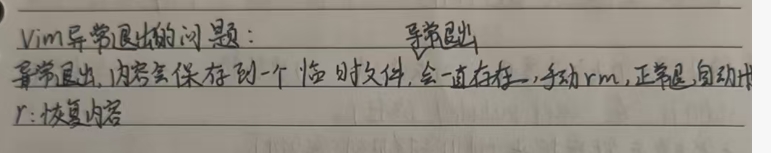 Vim异常退出的问题：
异常退出
异常退出，内容会保存到一个临时文件，会一直存在，手动rm，正常退，自动
r：恢复内容